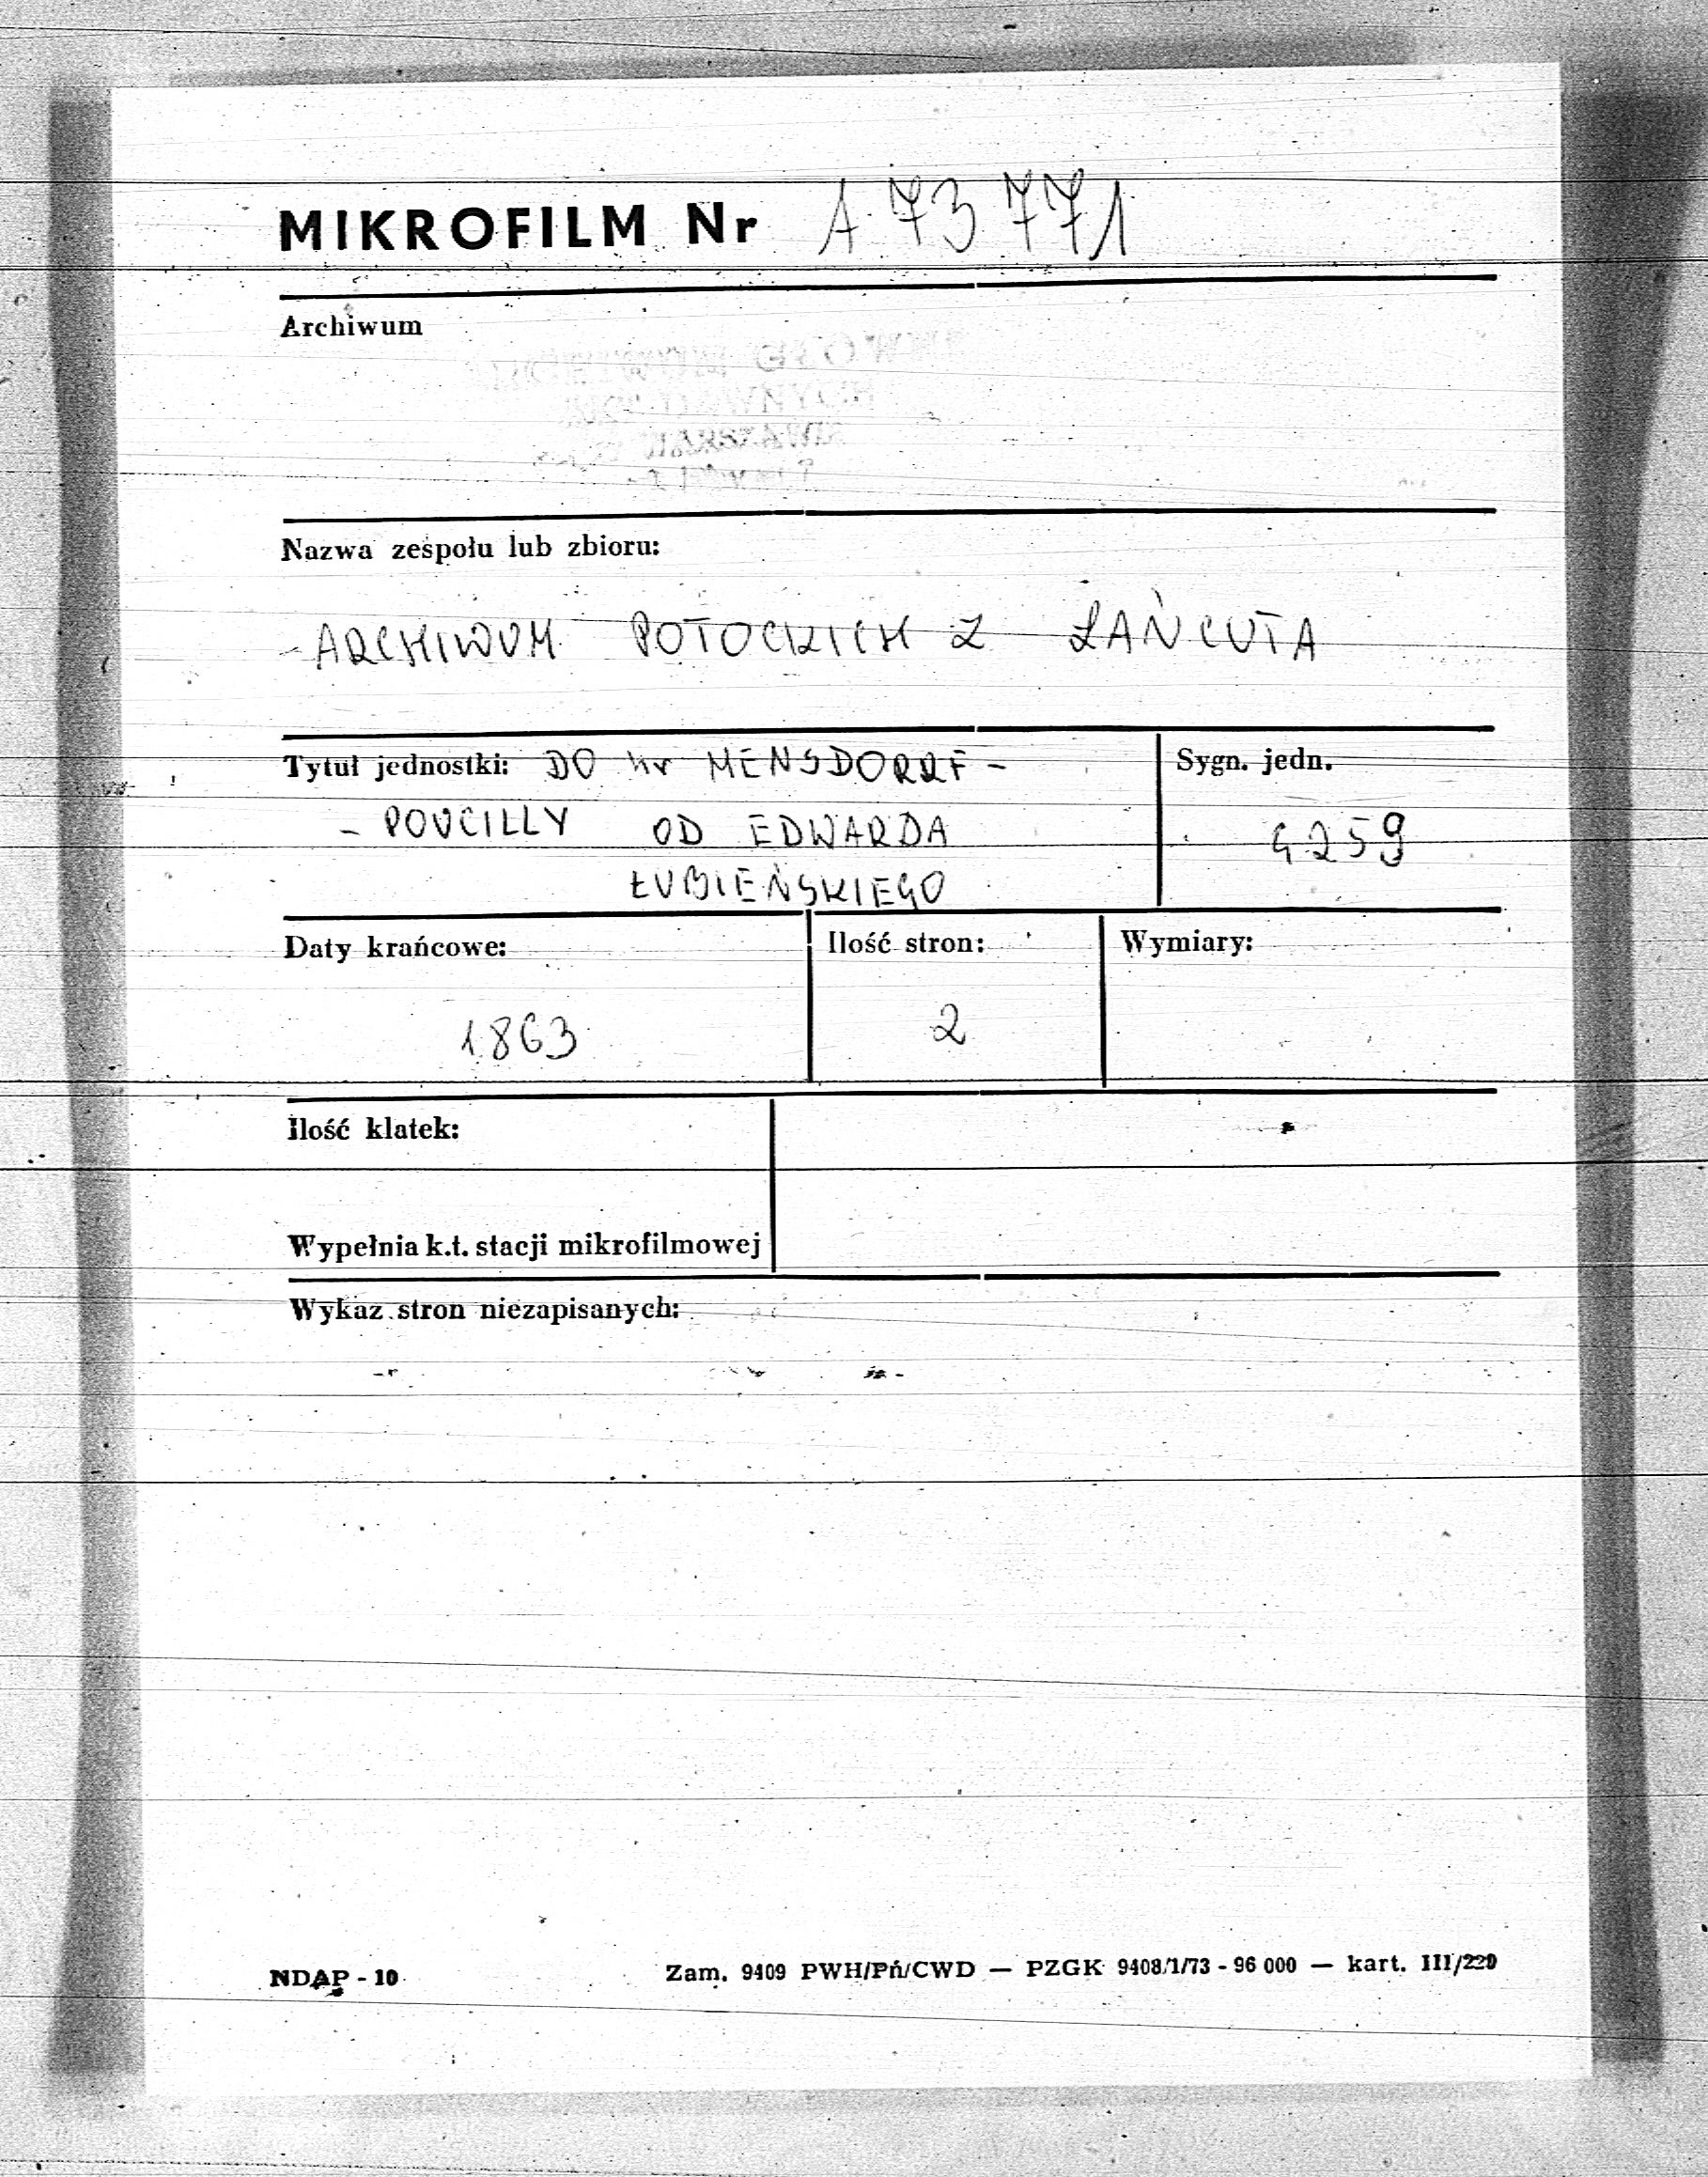 MIKROFILM Nr A 73 771
Archiwum
Nazwa zespołu lub zbioru:
ARCHIWUM POTOCKICH Z ŁAŃCUTA
Tytuł jednostki: DO hr MENSDORRF -
- POUCILLY OD EDWARDA
ŁUBIEŃSKIEGO
Sygn. jedn.
4259
Daty krańcowe:
1863
Ilość stron:
2
Wymiary:
Ilość klatek:
Wypełnia k.t. stacji mikrofilmowej
Wykaz stron niezapisanych:
NDAP - 10
Zam. 9409 PWH/Pń/CWD — PZGK 9408/1/73 - 96 000 — kart. III/220